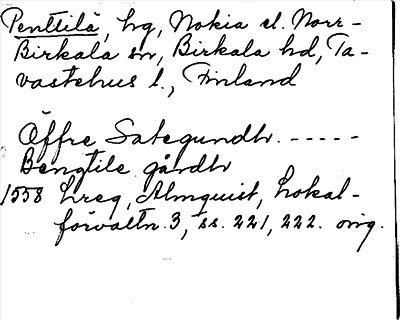 Penttilä, hg, Nokia sl. Norr-
Birkala sn, Birkala hd, Ta-
vastehus l., Finland
Öffre Sategundh. -----
Bengtile gårdh
1558 hreg, Almquist, Lokal-
förvaltn. 3, ss. 221, 222. orig.